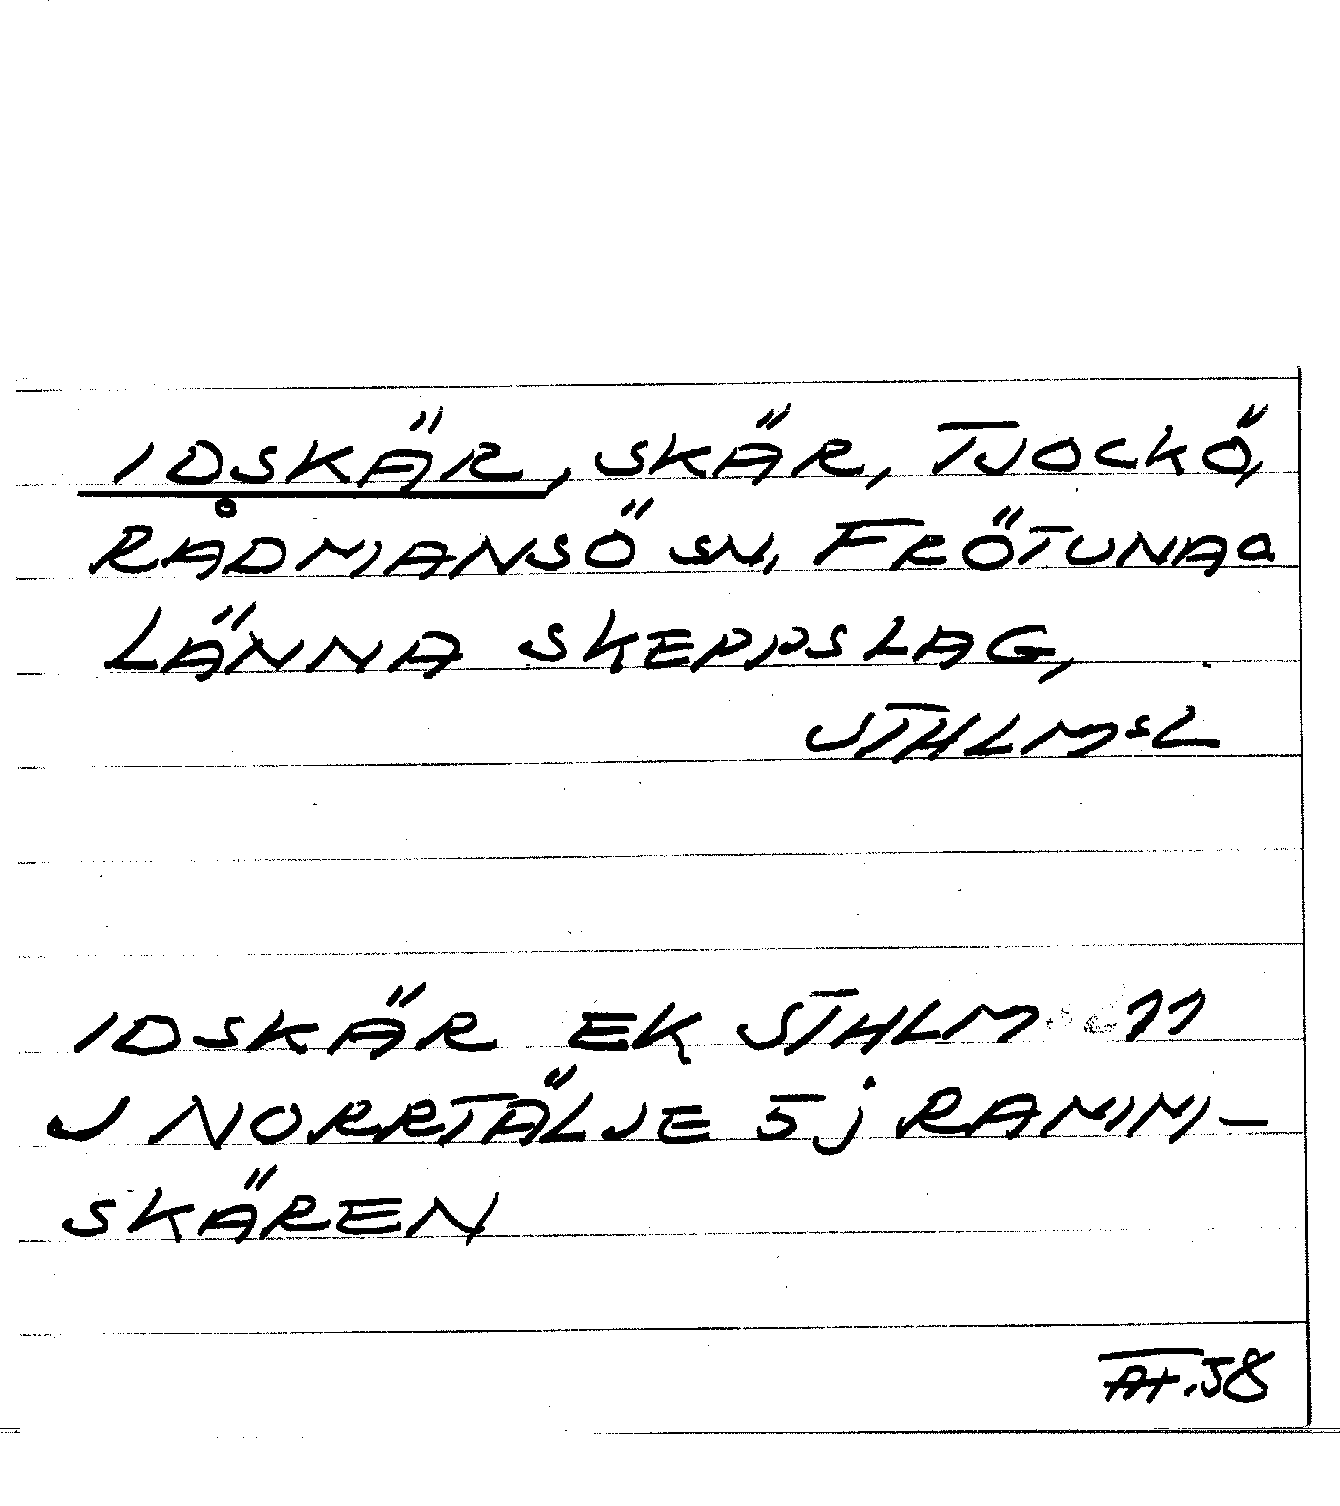 IDSKÄR, SKÄR, TJOCKÖ,
RÅDMANSÖ SN, FRÖTUNA O
LÄNNA SKEPPSLAG,
STHLMSL
IDSKÄR EK STHLM 11
J NORRTÄLJE 5j RAMM-
SKÄREN
.58